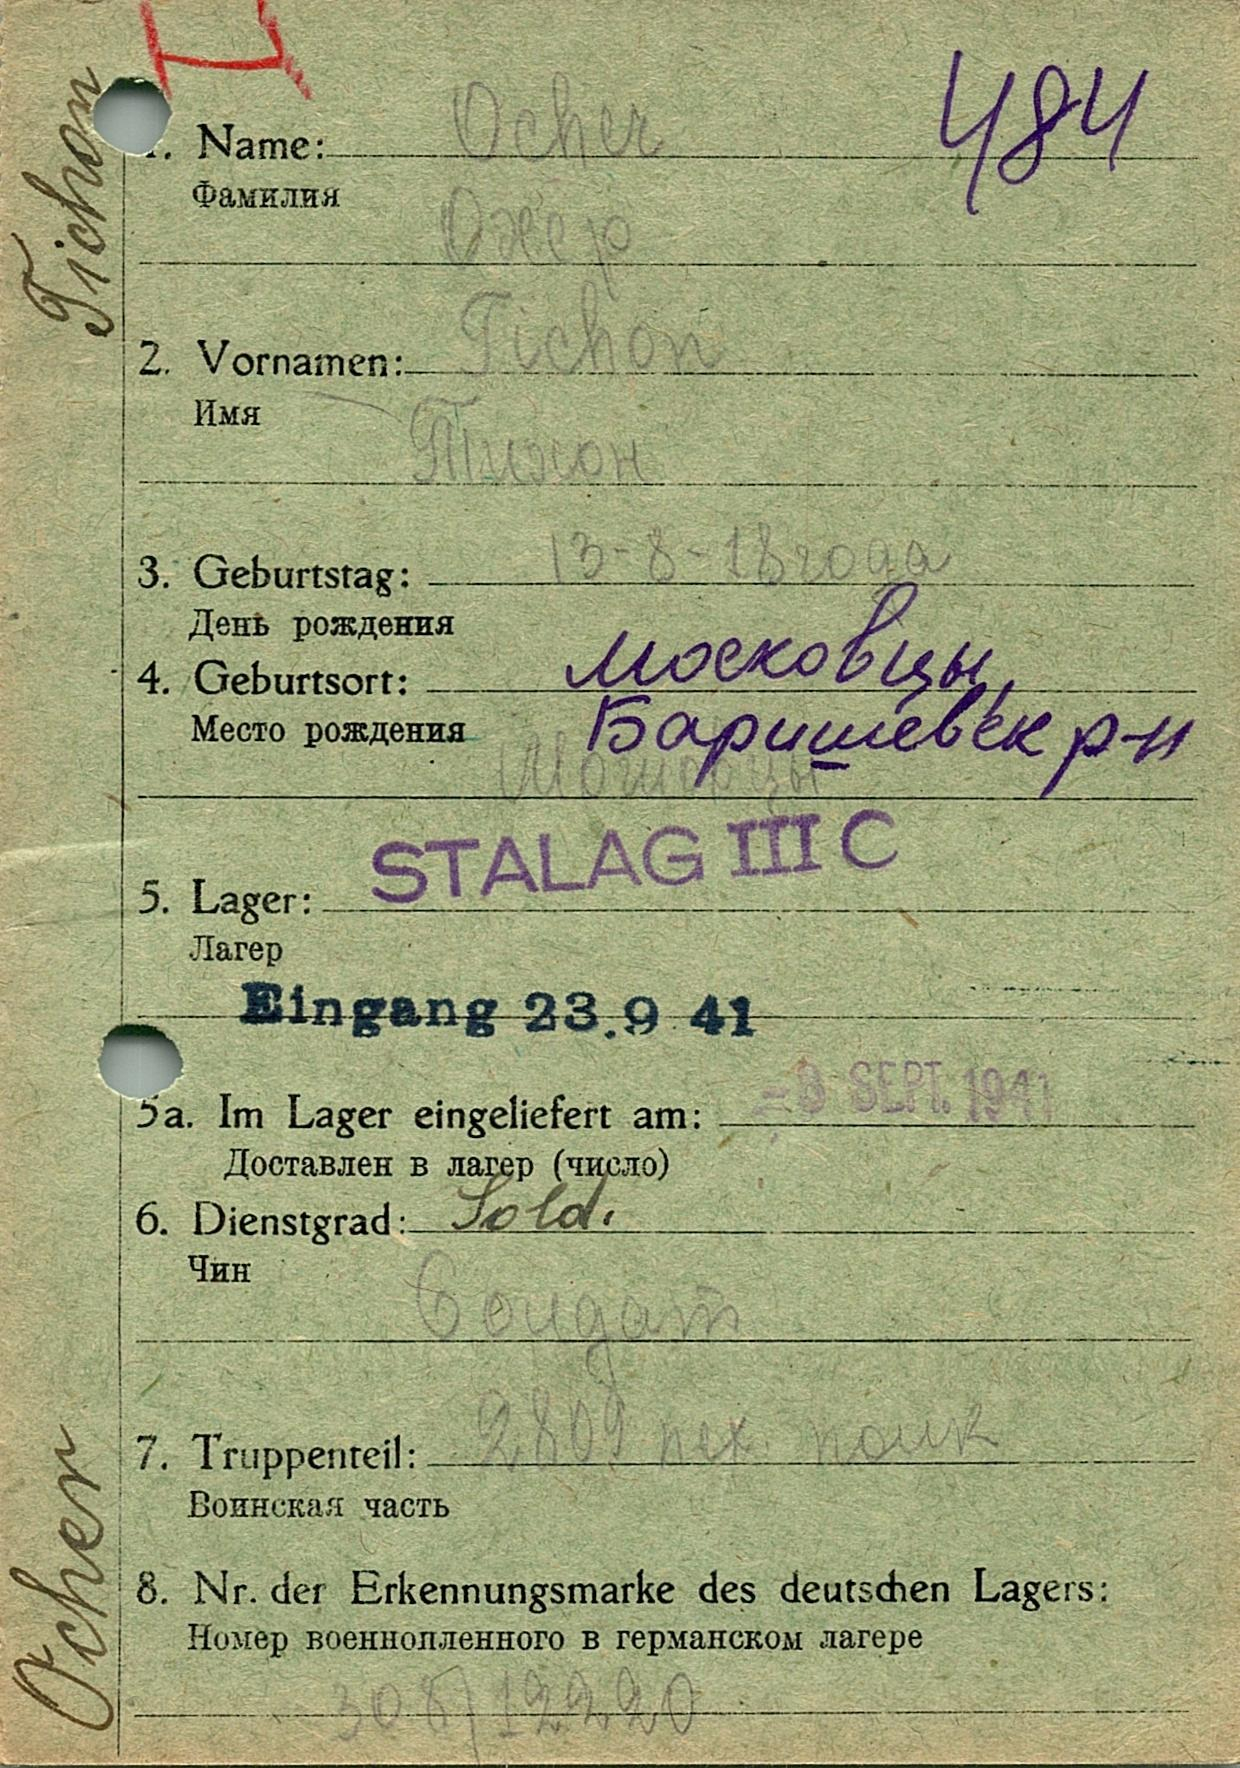 484
1. Name: Ocher
Фамилия
Охер
2. Vornamen: Tichon
Имя
Тихон
3. Geburtstag: 13-8-18 года
День рождения
4. Geburtsort: Московцы,
Место рождения Баришевск р-н
5. Lager: STALAG III C
Лагер
Eingang 23.9 41
5a. Im Lager eingeliefert am: SEPT. 1941
Доставлен в лагер (число)
6. Dienstgrad: Sold.
Чин
Солдат
7. Truppenteil: 2809 пех полк
Воинская часть
8. Nr. der Erkennungsmarke des deutschen Lagers:
Номер военнопленного в германском лагере
12220
Ocher Tichon